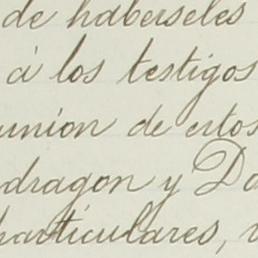 de haberseles
á los testigos
unión de estos
dragon y Do
particulares, v